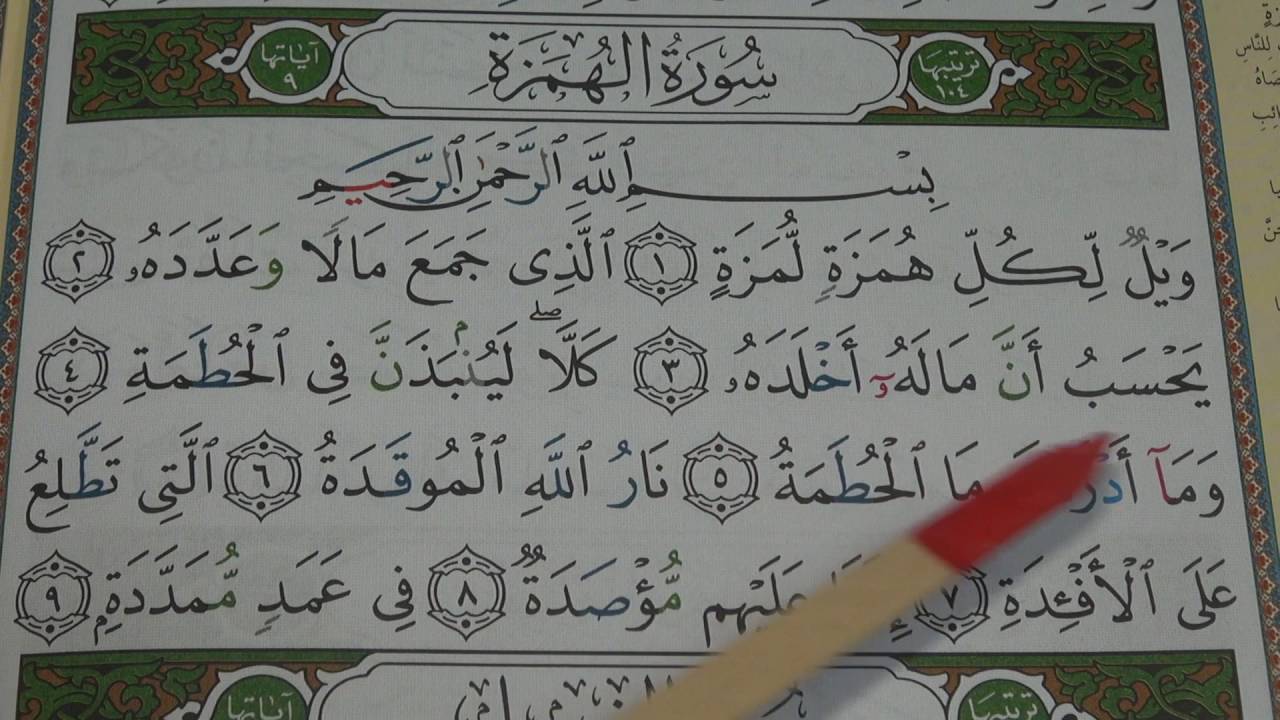 سُورَةُ الهُمَزَةِ
ترتيبها ١٠٤
آياتها ٩
بِسْمِ ٱللَّهِ ٱلرَّحْمَٰنِ ٱلرَّحِيمِ
وَيْلٌ لِّكُلِّ هُمَزَةٍ لُّمَزَةٍ ١ ٱلَّذِى جَمَعَ مَالًا وَعَدَّدَهُۥ ٢
يَحْسَبُ أَنَّ مَالَهُۥٓ أَخْلَدَهُۥ ٣ كَلَّا ۖ لَيُنۢبَذَنَّ فِى ٱلْحُطَمَةِ ٤
وَمَآ مَا ٱلْحُطَمَةُ ٥ نَارُ ٱللَّهِ ٱلْمُوقَدَةُ ٦ ٱلَّتِى تَطَّلِعُ
عَلَى ٱلْأَفْـِٔدَةِ ٧ عَلَيْهِم مُّؤْصَدَةٌ ٨ فِى عَمَدٍ مُّمَدَّدَةٍۭ ٩
ترتيبها
آياتها